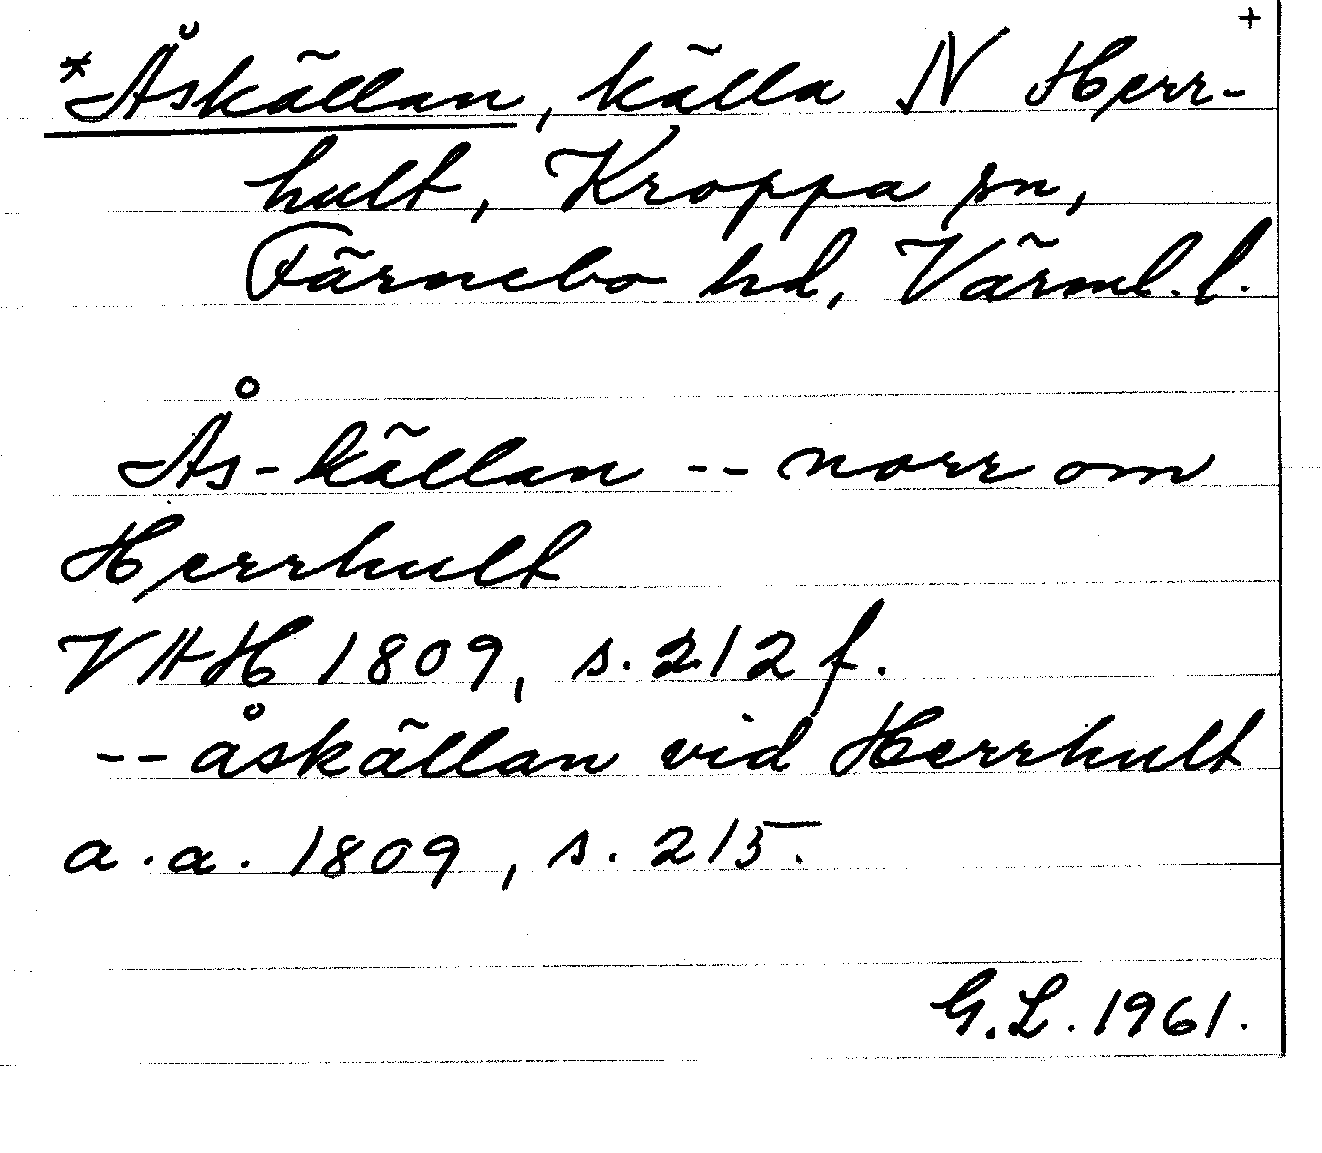 +
*Åskällan, källa N Herr-
hult, Kroppa sn,
Färnebo hd, Värml. l.
Ås-källan -- norr om
Herrhult
VAH 1809, s. 212 f.
-- åskällan vid Herrhult
a. a. 1809, s. 215.
G. L. 1961.